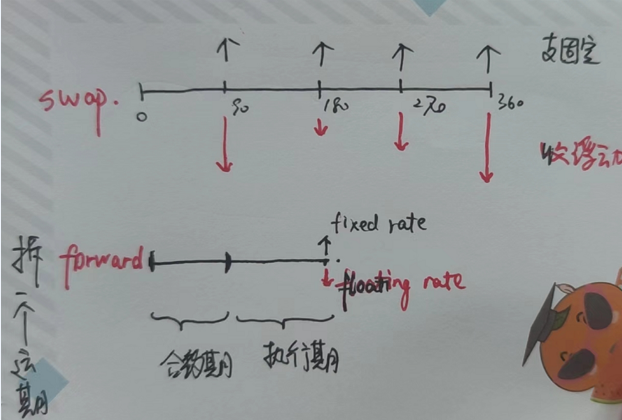 支固定
swap.
0 90 180 270 360
收浮动
fixed rate
forward
floating rate
拆一个远期
合数期月 执行期月